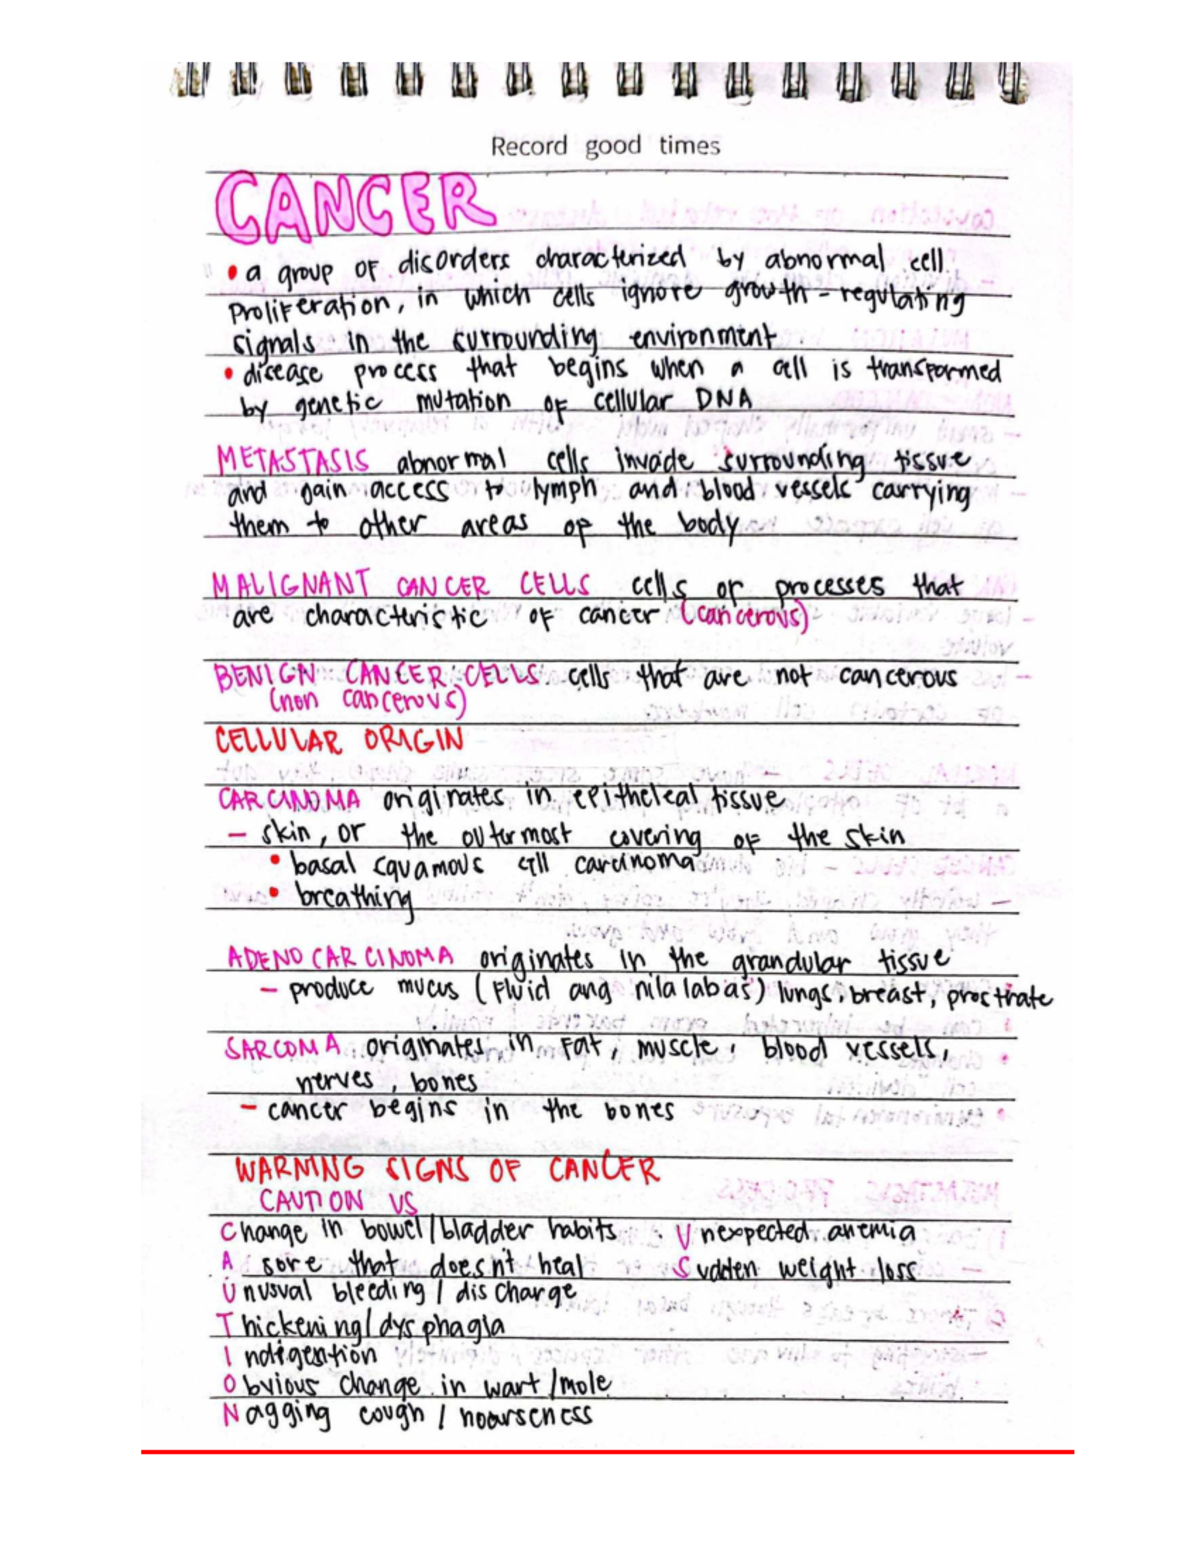 Record good times
CANCER
• a group of disorders characterized by abnormal cell
proliferation, in which cells ignore growth - regulating
signals in the surrounding environment
• disease process that begins when a cell is transformed
by genetic mutation of cellular DNA
METASTASIS abnormal cells invade surrounding tissue
and gain access to lymph and blood vessels carrying
them to other areas of the body
MALIGNANT CANCER CELLS cells or processes that
are characteristic of cancer (cancerous)
BENIGN CANCER CELLS cells that are not cancerous
(non cancerous)
CELLULAR ORIGIN
CARCINOMA originates in epitheleal tissue
- skin, or the outermost covering of the skin
• basal squamous cell carcinoma
• breathing
ADENOCARCINOMA originates in the grandular tissue
- produce mucus (fluid ang nilalabas) lungs, breast, prostrate
SARCOMA originates in fat, muscle, blood vessels,
nerves, bones
- cancer begins in the bones
WARNING SIGNS OF CANCER
CAUTION US
Change in bowel/bladder habits Unexpected anemia
A sore that doesn't heal Sudden weight loss
Unusual bleeding / discharge
Thickening/dysphagia
Indigestion
Obvious change in wart/mole
Nagging cough / hoarseness